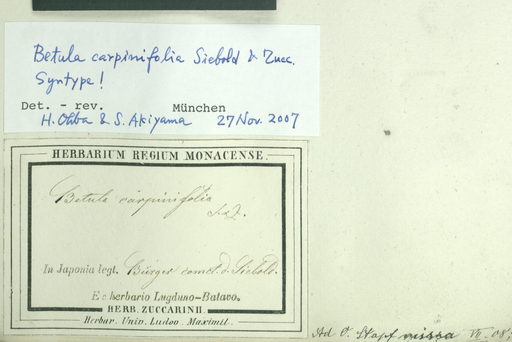 Betula carpinifolia Siebold & Zucc.
Syntype!
Det. - rev. München
H. Ohba & S. Akiyama 27 Nov. 2007
HERBARIUM REGIUM MONACENSE.
Betula carpinifolia
S. & Z.
In Japonia legt. Bürger comct. d. Siebold.
Ex herbario Lugduno-Batavo.
HERB. ZUCCARINII.
Herbar. Univ. Ludov. Maximil.
Ad O. Stapf missa VI. 08;